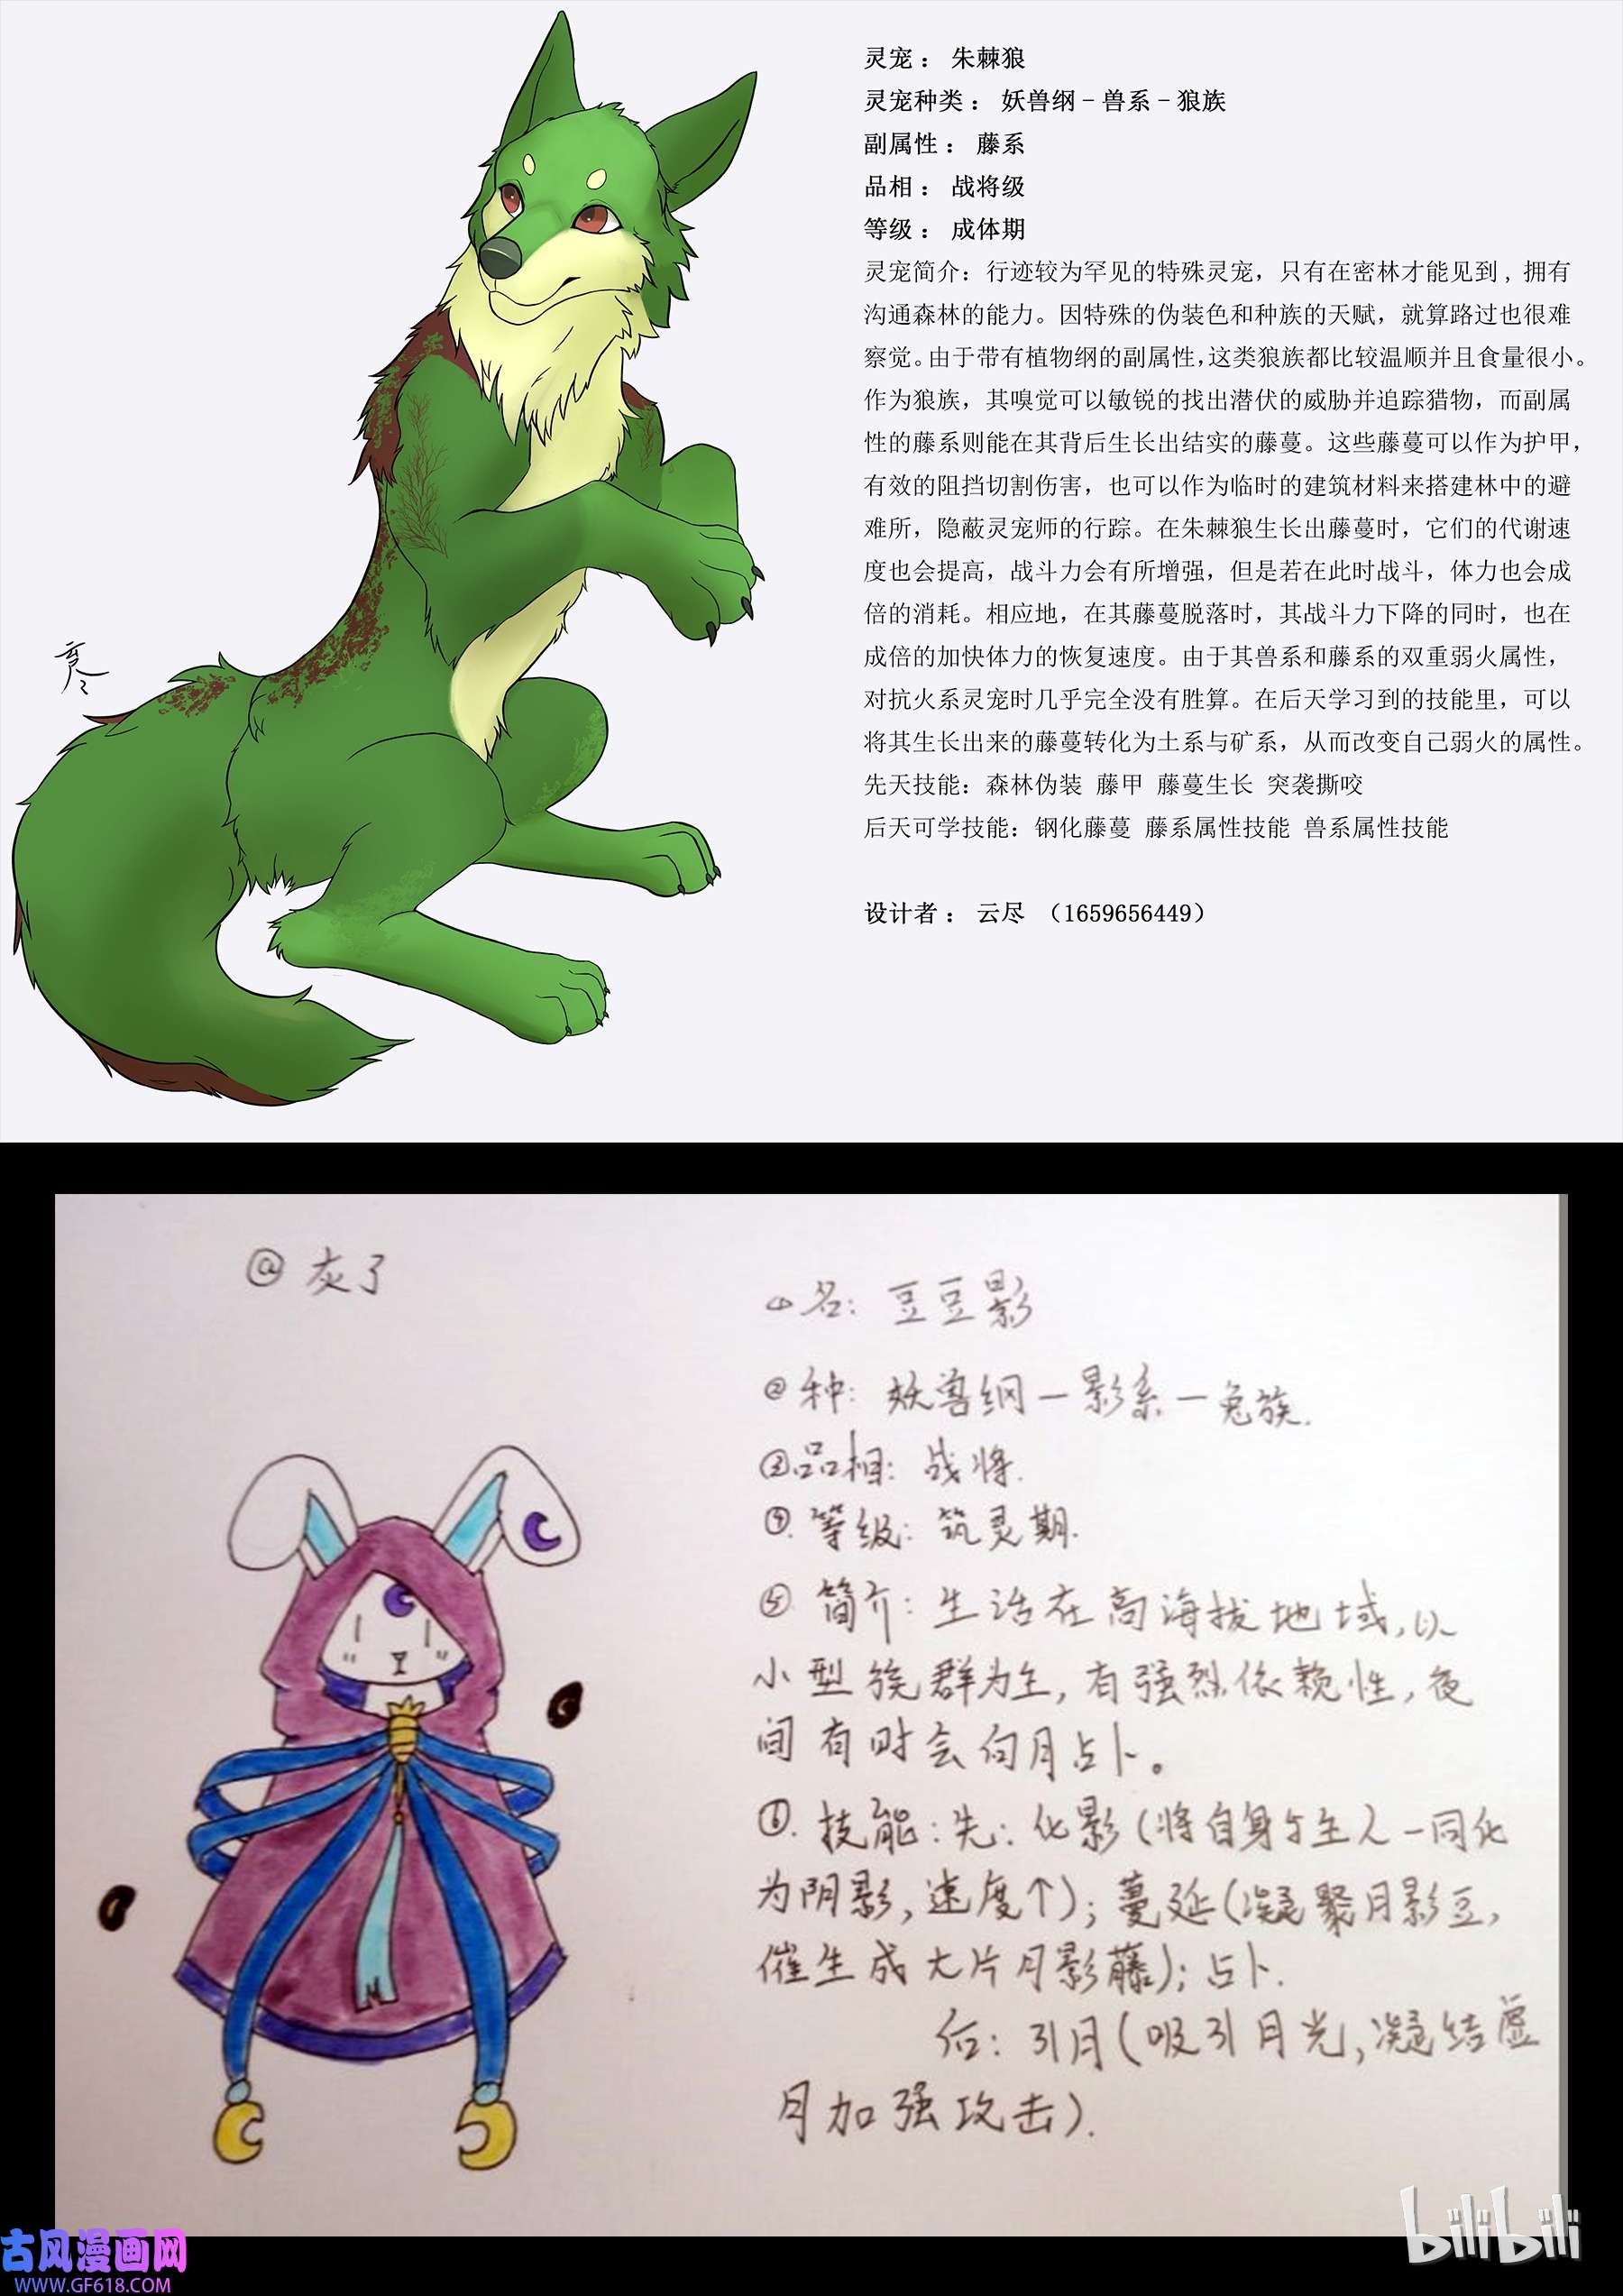 灵宠： 朱棘狼
灵宠种类： 妖兽纲－兽系－狼族
副属性： 藤系
品相： 战将级
等级： 成体期
灵宠简介：行迹较为罕见的特殊灵宠，只有在密林才能见到，拥有
沟通森林的能力。因特殊的伪装色和种族的天赋，就算路过也很难
察觉。由于带有植物纲的副属性，这类狼族都比较温顺并且食量很小。
作为狼族，其嗅觉可以敏锐的找出潜伏的威胁并追踪猎物，而副属
性的藤系则能在其背后生长出结实的藤蔓。这些藤蔓可以作为护甲，
有效的阻挡切割伤害，也可以作为临时的建筑材料来搭建林中的避
难所，隐蔽灵宠师的行踪。在朱棘狼生长出藤蔓时，它们的代谢速
度也会提高，战斗力会有所增强，但是若在此时战斗，体力也会成
倍的消耗。相应地，在其藤蔓脱落时，其战斗力下降的同时，也在
成倍的加快体力的恢复速度。由于其兽系和藤系的双重弱火属性，
对抗火系灵宠时几乎完全没有胜算。在后天学习到的技能里，可以
将其生长出来的藤蔓转化为土系与矿系，从而改变自己弱火的属性。
先天技能：森林伪装 藤甲 藤蔓生长 突袭撕咬
后天可学技能：钢化藤蔓 藤系属性技能 兽系属性技能
设计者： 云尽 （1659656449）
@灰了
①名：豆豆影
②种：妖兽纲－影系－兔族.
③品相：战将.
④.等级：筑灵期.
⑤.简介：生活在高海拔地域,以
小型族群为主,有强烈依赖性,夜
间有时会向月占卜。
⑥.技能：先：化影(将自身与主人一同化
为阴影,速度↑)；蔓延(凝聚月影豆,
催生成大片月影藤)；占卜.
后：引月(吸引月光,凝结虚
月加强攻击).
bilibili
古风漫画网
WWW.GF618.COM